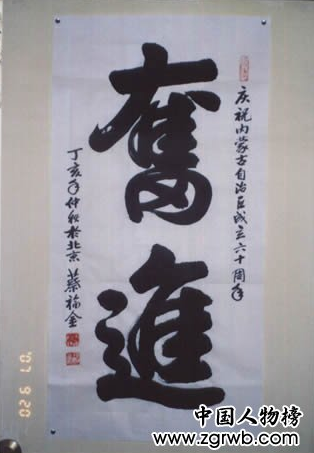 庆祝内蒙古自治区成立六十周年
奮進
丁亥年仲秋於北京 蔡福金
'07 9 20
中国人物榜
www.zgrwb.com